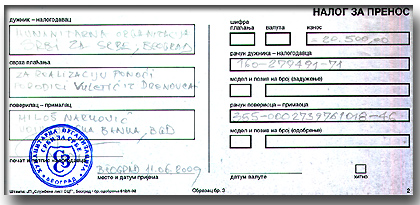 НАЛОГ ЗА ПРЕНОС
дужник – налогодавац
HUMANITARNA ORGANIZACIJA
SRBI ZA SRBE, BEOGRAD
шифра
плаћања
валута
износ
= 20.500,00
рачун дужника – налогодавца
160-279491-71
сврха плаћања
ZA REALIZACIJU POMOĆI
PORODICI VULETIĆ IZ
модел и позив на број (задужење)
поверилац – прималац
MILOŠ MARKOVIĆ
BANKA, BGD
рачун повериоца – примаоца
355-0002739761018-46
модел и позив на број (одобрење)
BEOGRAD 11.06.2009
место и датум пријема
датум валуте
хитно
Образац бр. 3
2